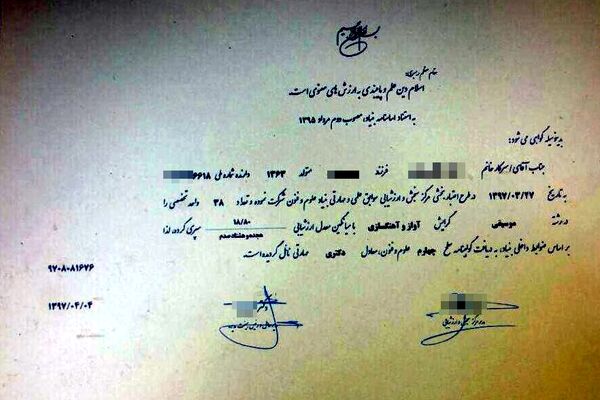 مقام معظم رهبری:
اسلام دین علم و پایبندی به ارزش های معنوی است.
به استناد اساسنامه بنیاد، مصوب دوم مرداد ۱۳۹۵
بدینوسیله گواهی می شود:
جناب آقای / سرکار خانم فرزند متولد ۱۳۶۳ دارنده شماره ملی ۶۶۱۸
به تاریخ ۱۳۹۷/۰۳/۲۷ در طرح اعتباربخشی مرکز سنجش و ارزشیابی سوابق علمی و مهارتی بنیاد علوم و فنون شرکت نموده و تعداد ۳۸ واحد تخصصی را
در رشته موسیقی گرایش آواز و آهنگسازی با میانگین معدل ارزشیابی ۱۸/۸۰ هجده و هشتاد صدم سپری کرده، لذا
بر اساس ضوابط داخلی بنیاد به دریافت گواهینامه سطح چهارم علوم و فنون، معادل دکتری مهارتی نائل گردیده است.
۹۷۰۸۰۸۱۶۷۶
۱۳۹۷/۰۴/۰۴
مدیر مرکز سنجش و ارزشیابی